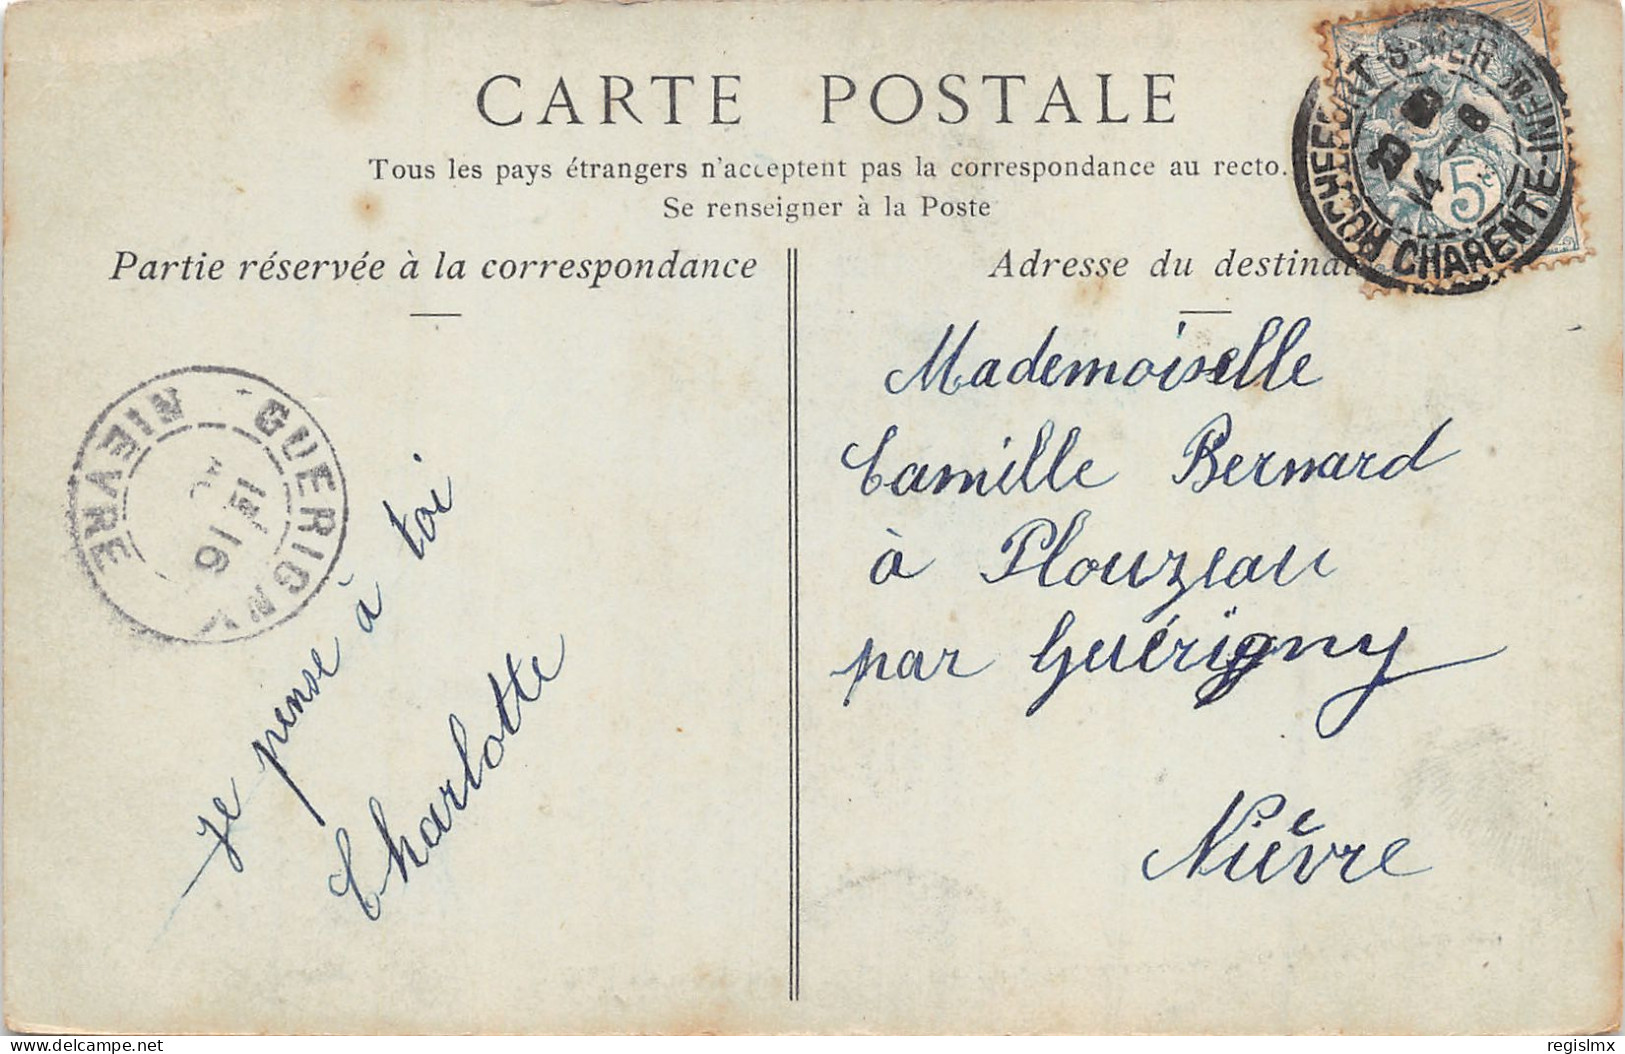 CARTE POSTALE
Tous les pays étrangers n'acceptent pas la correspondance au recto.
Se renseigner à la Poste
Partie réservée à la correspondance
Adresse du destinat
ROCHEFORT-S-MER
CHARENTE-INF
5c
GUERIGNY
NIEVRE
Mademoiselle
Camille Bernard
à Plouzeau
par Guérigny
Nièvre
je pense à toi
Charlotte
delcampe.net
regislmx